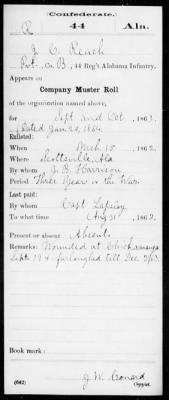 Confederate.
R 44 Ala.
J. C. Reach
Pvt., Co. B, 44 Reg't Alabama Infantry.
Appears on
Company Muster Roll
of the organization named above,
for Sept and Oct, 1863.
Dated Jan 20, 1864
Enlisted:
When Mch 15, 1862.
Where Scottsville, Ala
By whom J. B. Harrison
Period Three Years or the War
Last paid:
By whom Capt Lapsley
To what time Aug 31, 1863.
Present or absent Absent
Remarks: Wounded at Chickamauga
Sept. 19 & furloughed till Dec 3/63.
Book mark:
(642) J. W. Copyist.